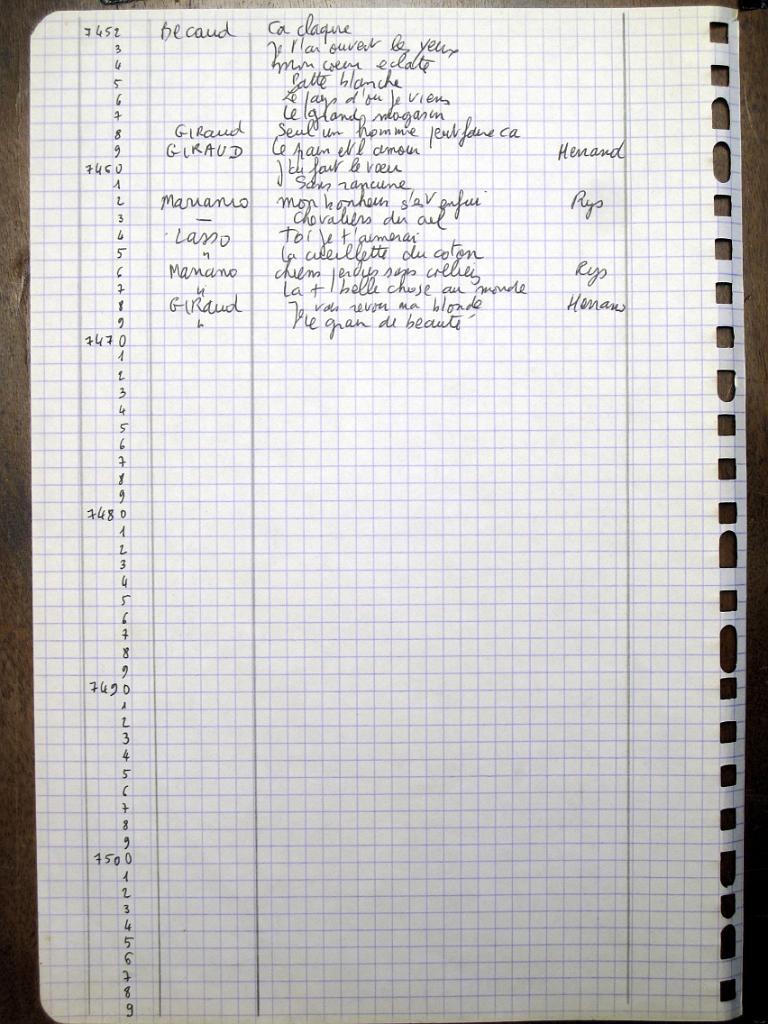 7452 Becaud Ca claque
3 Je t'ai ouvert les yeux
4 mon coeur eclate
5 Patte blanche
6 Le pays d'ou je viens
7 Le grand magasin
8 GiRaud Seul un homme peut faire ca
9 GiRAUD Le pain et l amour Herrand
7460 J'ai fait le voeu
1 Sans rancune
2 Mariano mon bonheur s'est enfui Rys
3 — Chevaliers du ciel
4 Lasso Toi je t'aimerai
5 " La cueillette du coton
6 Mariano chiens perdus sans collier Rys
7 " La + belle chose au monde
8 GIRaud Je vais revoir ma blonde
9 " Le grain de beauté
7470
1
2
3
4
5
6
7
8
9
7480
1
2
3
4
5
6
7
8
9
7490
1
2
3
4
5
6
7
8
9
7500
1
2
3
4
5
6
7
8
9